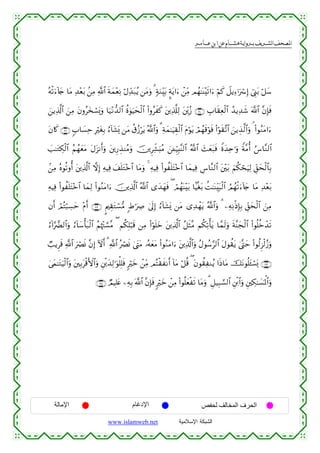 المصحف الشريف برواية هشام عن ابن عامر
سَلْ بَنِىٓ إِسْرَٰٓءِيلَ كَمْ ءَاتَيْنَٰهُم مِّنْ ءَايَةٍۭ بَيِّنَةٍ ۗ وَمَن يُبَدِّلْ نِعْمَةَ ٱللَّهِ مِنۢ بَعْدِ مَا جَآءَتْهُ
فَإِنَّ ٱللَّهَ شَدِيدُ ٱلْعِقَابِ زُيِّنَ لِلَّذِينَ كَفَرُوا۟ ٱلْحَيَوٰةُ ٱلدُّنْيَا وَيَسْخَرُونَ مِنَ ٱلَّذِينَ
ءَامَنُوا۟ ۘ وَٱلَّذِينَ ٱتَّقَوْا۟ فَوْقَهُمْ يَوْمَ ٱلْقِيَٰمَةِ ۗ وَٱللَّهُ يَرْزُقُ مَن يَشَآءُ بِغَيْرِ حِسَابٍ كَانَ
ٱلنَّاسُ أُمَّةً وَٰحِدَةً فَبَعَثَ ٱللَّهُ ٱلنَّبِيِّـۧنَ مُبَشِّرِينَ وَمُنذِرِينَ وَأَنزَلَ مَعَهُمُ ٱلْكِتَٰبَ
بِٱلْحَقِّ لِيَحْكُمَ بَيْنَ ٱلنَّاسِ فِيمَا ٱخْتَلَفُوا۟ فِيهِ ۚ وَمَا ٱخْتَلَفَ فِيهِ إِلَّا ٱلَّذِينَ أُوتُوهُ مِنۢ
بَعْدِ مَا جَآءَتْهُمُ ٱلْبَيِّنَٰتُ بَغْيًۢا بَيْنَهُمْ ۖ فَهَدَى ٱللَّهُ ٱلَّذِينَ ءَامَنُوا۟ لِمَا ٱخْتَلَفُوا۟ فِيهِ
مِنَ ٱلْحَقِّ بِإِذْنِهِۦ ۗ وَٱللَّهُ يَهْدِى مَن يَشَآءُ إِلَىٰ صِرَٰطٍ مُّسْتَقِيمٍ أَمْ حَسِبْتُمْ أَن
تَدْخُلُوا۟ ٱلْجَنَّةَ وَلَمَّا يَأْتِكُم مَّثَلُ ٱلَّذِينَ خَلَوْا۟ مِن قَبْلِكُم ۖ مَّسَّتْهُمُ ٱلْبَأْسَآءُ وَٱلضَّرَّآءُ
وَزُلْزِلُوا۟ حَتَّىٰ يَقُولَ ٱلرَّسُولُ وَٱلَّذِينَ ءَامَنُوا۟ مَعَهُۥ مَتَىٰ نَصْرُ ٱللَّهِ ۗ أَلَآ إِنَّ نَصْرَ ٱللَّهِ قَرِيبٌ
يَسْـَٔلُونَكَ مَاذَا يُنفِقُونَ ۖ قُلْ مَآ أَنفَقْتُم مِّنْ خَيْرٍ فَلِلْوَٰلِدَيْنِ وَٱلْأَقْرَبِينَ وَٱلْيَتَٰمَىٰ
وَٱلْمَسَٰكِينِ وَٱبْنِ ٱلسَّبِيلِ ۗ وَمَا تَفْعَلُوا۟ مِنْ خَيْرٍ فَإِنَّ ٱللَّهَ بِهِۦ عَلِيمٌ
الحرف المخالف لحفص الإدغام الإمالة
الشبكة الإسلامية www.islamweb.net